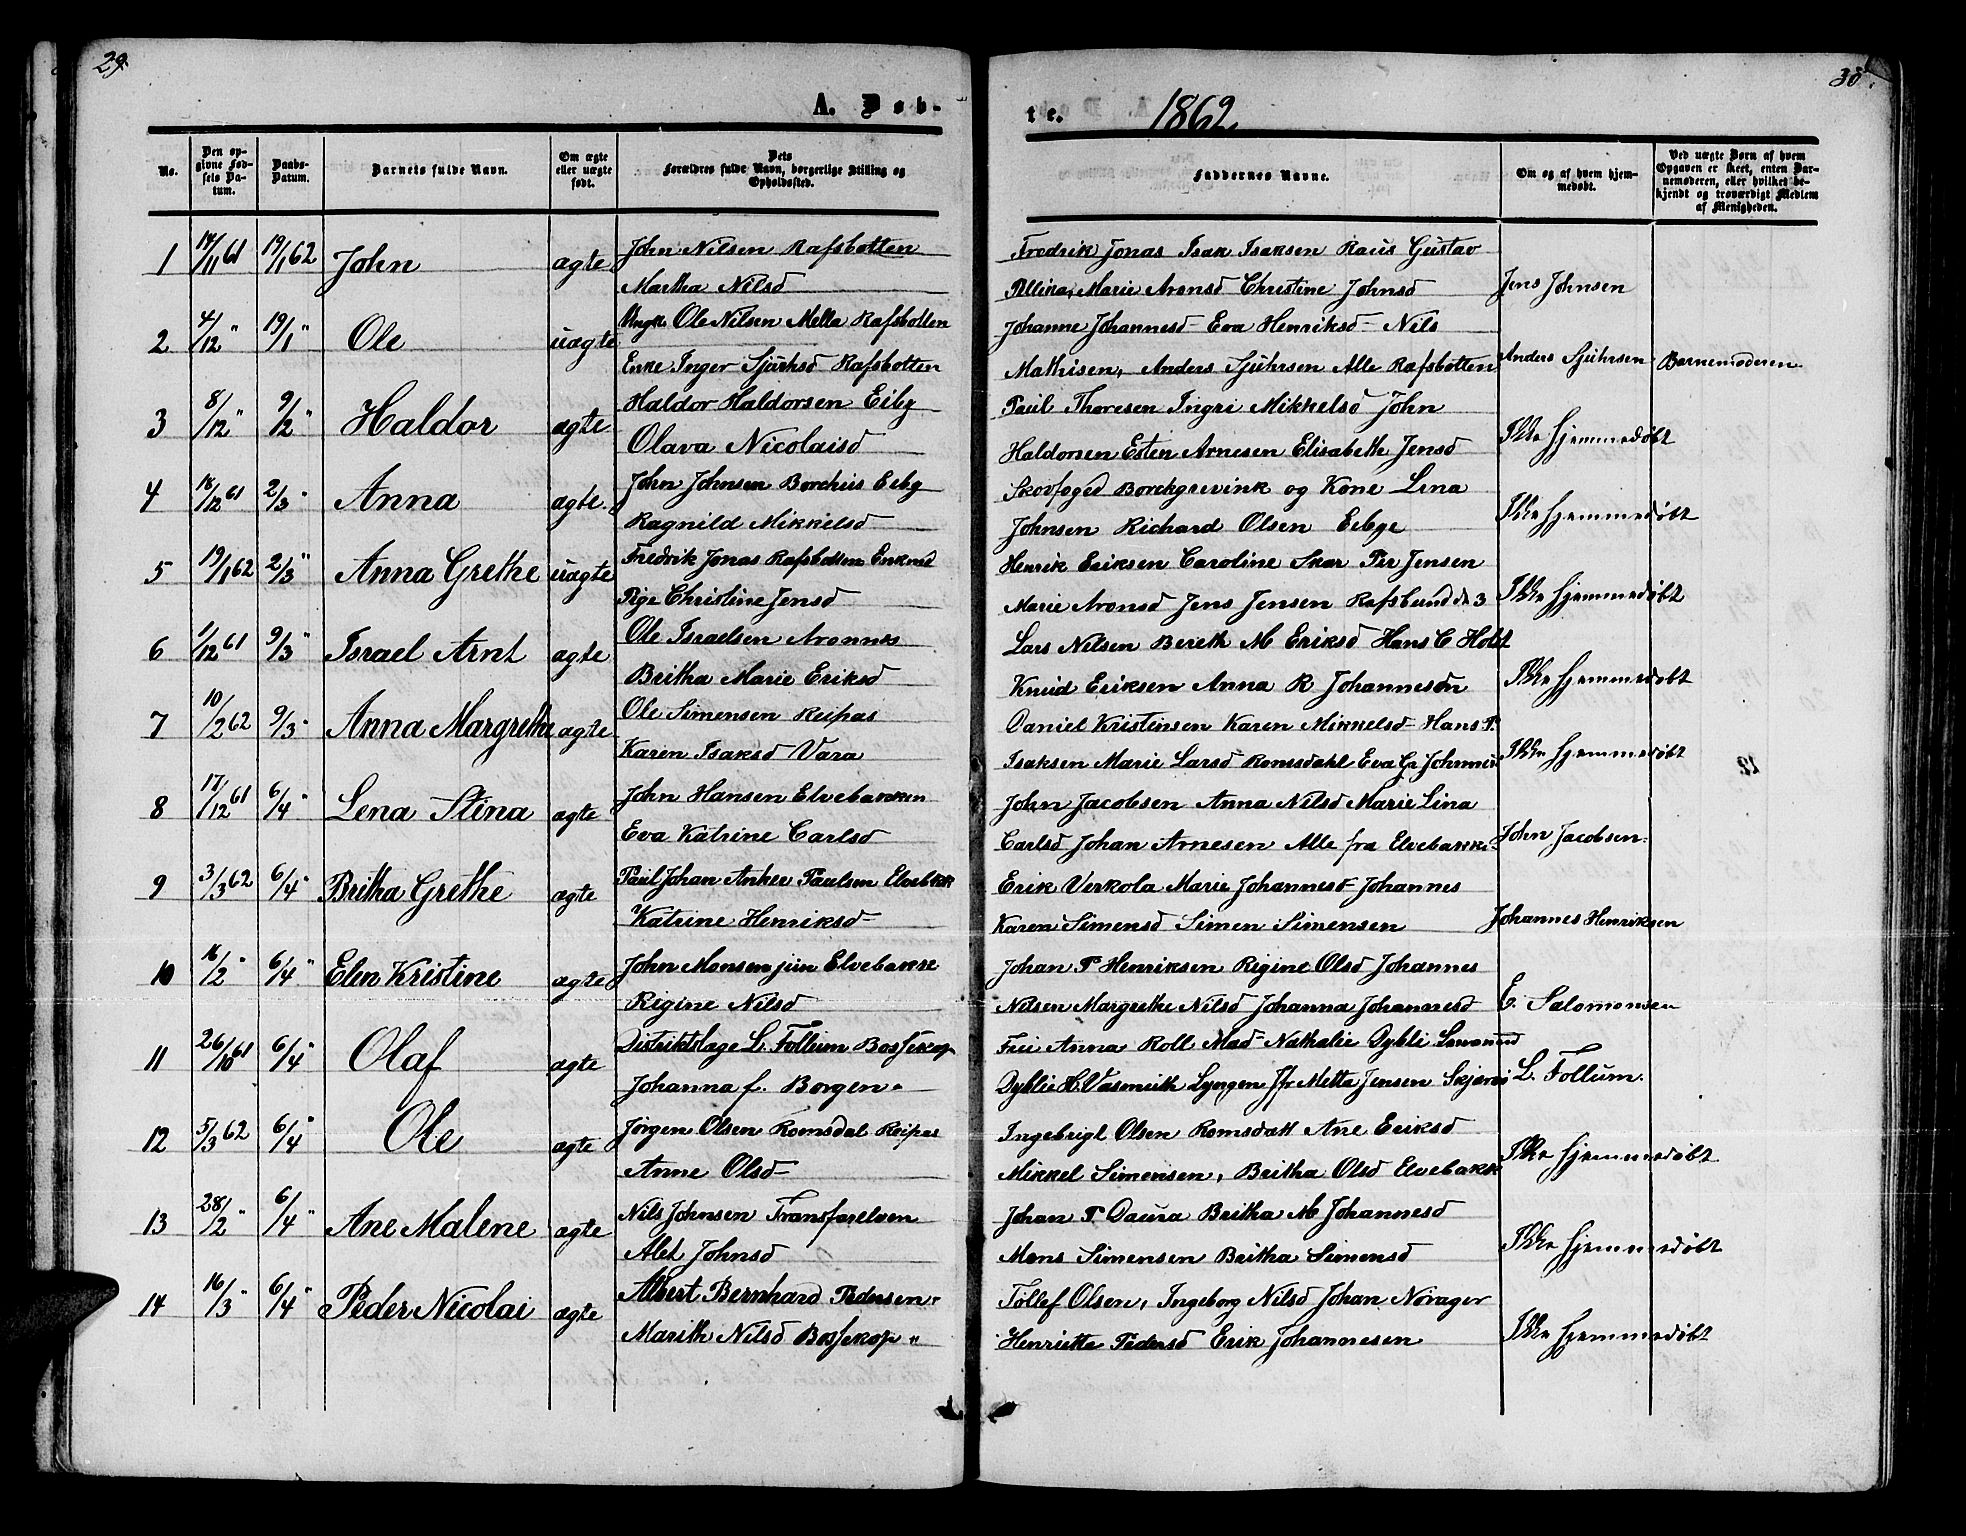 29.
30.
A. Døb-
te.
1862.
No.
Den op-
givne Fød-
sels Da-
tum.
Daabs-
Datum.
Barnets fulde Navn.
Om ægte
eller uægte
født.
Dets
Forældres fulde Navn, borgerlige Stilling og
Opholdssted.
Faddernes Navne.
Om og af hvem hjem-
medøbt.
Ved uægte Børn af hvem
Opgaven er skeet, enten Bar-
nemoderen, eller hvilket be-
kjendt og troværdigt Medlem
af Menigheden.
1 61 19/1 62 John ægte John Nilsen Rafsbotten
Martha Nilsd
Fredrik Jonas Isak Isaksen Gustav
Marie Aronsd Christine Johnsd
Jens Johnsen
2 4/12 " 19/1 " Ole uægte Ungk Ole Nilsen Mella Rafsbotten
Enke Inger Rafsbotten
Johanne Johannesd Eva Henriksd Nils
Mathisen, Anders Sjuhrsen Alle Rafsbotten
Anders Sjuhrsen
Barnemoderen
3 8/12 " 9/2 " Haldor ægte Haldor Haldorsen Eiby
Olava Nicolaisd
Paul Thoresen Ingri Mikkelsd John
Haldorsen Esten Arnesen Elisabeth Jensd
Ikke hjemmedøbt
4 18/12 61 2/3 " Anna ægte. John Johnsen Borchus Eiby
Ragnild Mikkelsd
Skovfoged Borchgrevink og Kone Lina
Johnsen Richard Olsen Eibye
Ikke hjemmedøbt
5 19/1 62 2/3 " Anna Grethe uægte Fredrik Jonas Rafsbotten Enkmd
Pige Christine Jensd
Henrik Eriksen Caroline Skar Per Jensen
Marie Aronsd Jens Jensen
Ikke hjemmedøbt
6 1/12 61 9/3 " Israel Arnt ægte Ole Israelsen Aronnes
Britha Marie Eriksd
Lars Nilsen Bereth M Eriksd Hans C Holst
Knud Eriksen Anna R Johannesdn
Ikke hjemmedøbt
7 10/2 62 9/3 " Anna Margrethe ægte Ole Simensen Reipas
Karen Isaksd Vara
Daniel Kristensen Karen Mikkelsd Hans P.
Isaksen Marie Larsd Romsdahl Eva Gr
Ikke hjemmedøbt
8 17/12 61 6/4 " Lena Stina ægte John Hansen Elvebakken
Eva Katrine Carlsd
John Jacobsen Anna Nilsd Marie Lina
Carlsd Johan Arnesen Alle fra Elvebakke
John Jacobsen
9 3/3 62 6/4 " Britha Grethe ægte Paul Johan Anker Paulsen Elvebakk
Katrine Henriksd
Erik Verkola Marie Johannesd Johannes
Karen Simensd Simen Simensen
Johannes Henriksen
10 16/2 " 6/4 " Elen Kristine ægte John Monsen jun Elvebakke
Rigine Nilsd
Johan P Henriksen Rigine Olsd Johannes
Nilsen Margrethe Nilsd Johanna Johannesd
E. Salomonsen
11 26/10 61 6/4 " Olaf ægte Distriktslæge L. Follum Bossekop
Johanna f. Borgen
Anna Roll Mad Nathalie Dybli
Dyblie Lyngen Jfr Metta Jensen Skjervø
L. Follum.
12 5/3 62 6/4 " Ole ægte Jørgen Olsen Romsdal Reipas
Anne Olsd
Ingebrigt Olsen Romsdal Ane Eriksd
Mikkel Simensen, Britha Olsd Elvebakk
Ikke hjemmedøbt
13 28/2 " 6/4 " Ane Malene ægte Nils Johnsen Transfarelven
Alet Johnsd
Johan P Daura Britha M Johannesd
Mons Simensen Britha Simensd
Ikke hjemmedøbt
14 16/3 " 6/4 " Peder Nicolai ægte Albert Bernhard Pedersen
Marith Nilsd Bossekop "
Tollef Olsen, Ingeborg Nilsd Johan Norager
Henriette Pedersd Erik Johannesen
Ikke hjemmedøbt